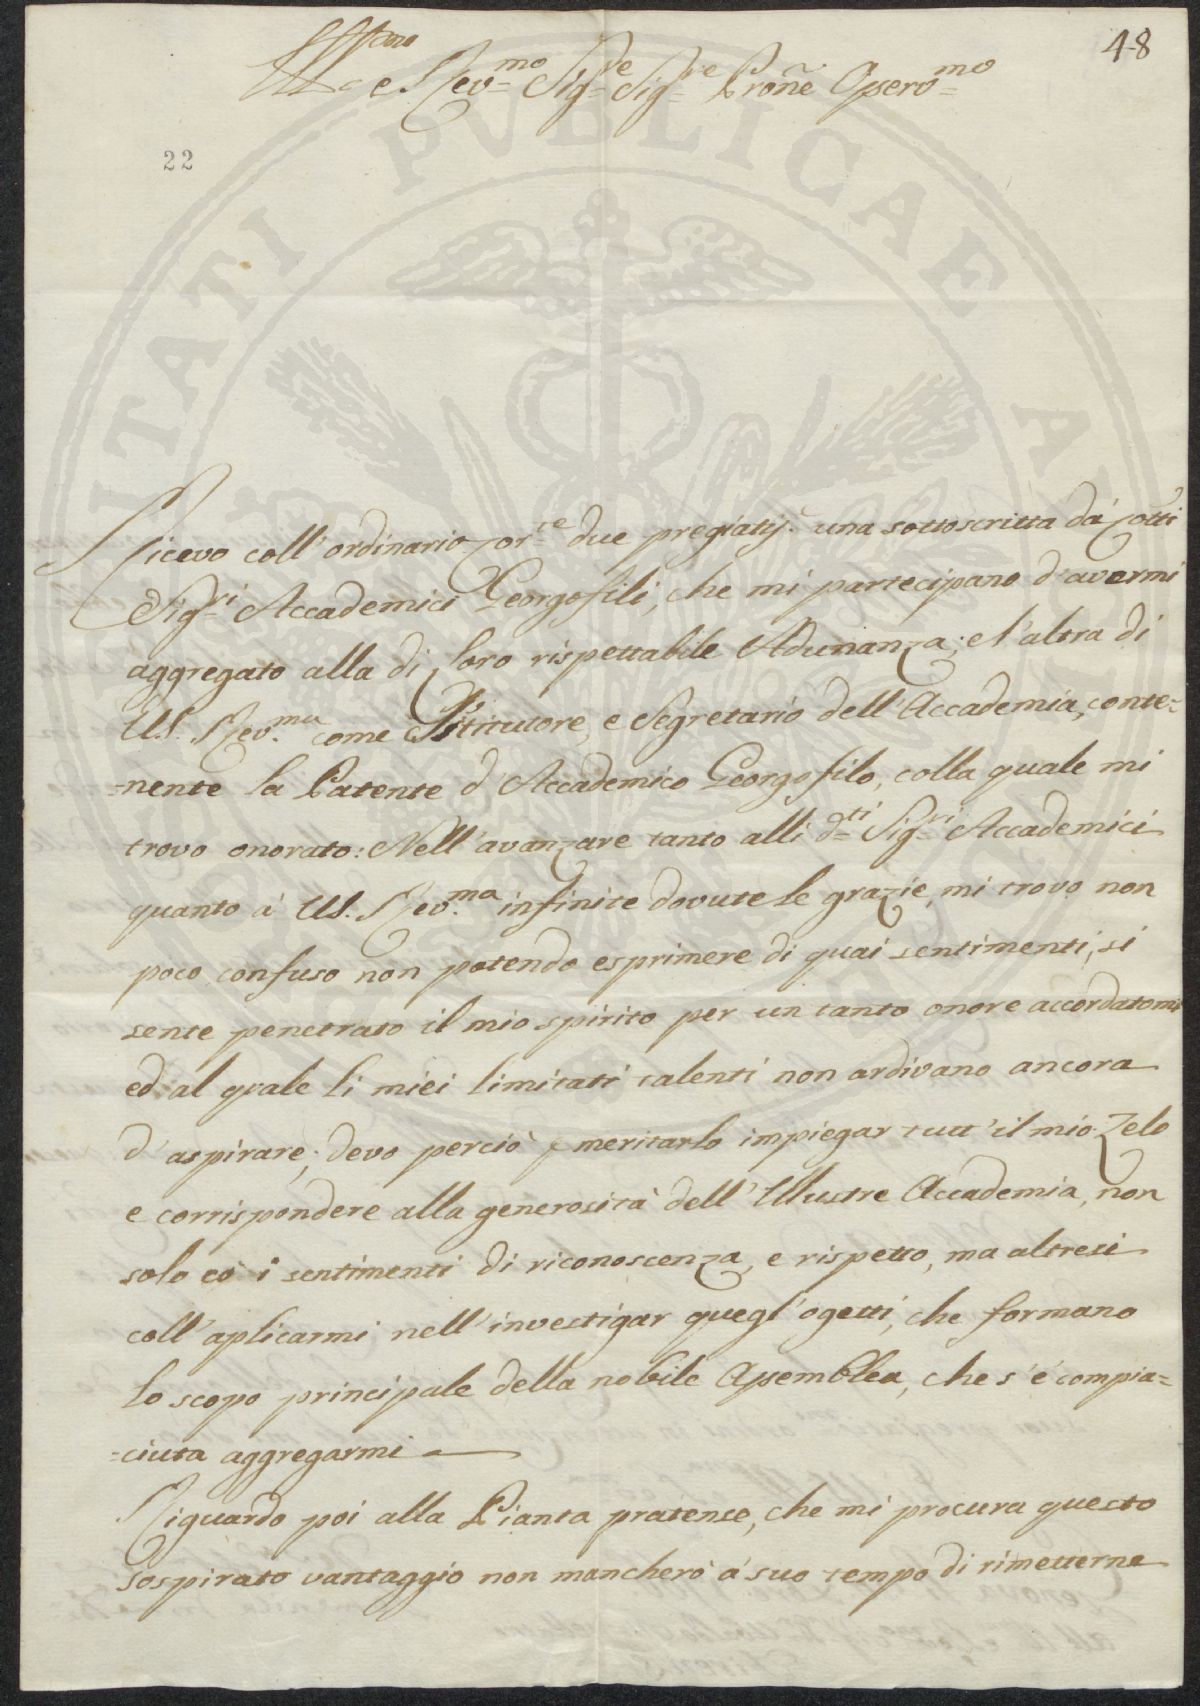 48
Ill.mo e Rev.mo Sig.re Sig.re Prōne Osser.mo
22
PVBLICAE
Ricevo coll'ordinario cor.te due pregiatis.e una sottoscritta dà cotti
Sig.ri Accademici Georgofili, che mi partecipano d'avermi
aggregato alla di loro rispettabile Adunanza; e l'altra di
U.S. Rev.ma come Istitutore, e Segretario dell'Accademia, conte=
=nente la Patente d'Accademico Georgofilo, colla quale mi
trovo onorato: Nell'avanzare tanto alli d.ti Sig.ri Accademici
quanto à U.S. Rev.ma infinite dovutele grazie, mi trovo non
poco confuso non potendo esprimere di quai sentimenti, si
sente penetrato il mio spirito per un tanto onore accordatomi
ed al quale li miei limitati talenti non ardivano ancora
d'aspirare; devo perciò p meritarlo impiegar tutt'il mio Zelo
e corrispondere alla generosità dell'Illustre Accademia, non
solo cò i sentimenti di riconoscenza, e rispetto, ma altresi
coll'aplicarmi nell'investigar quegl'ogetti, che formano
lo scopo principale della nobile Assemblea, che s'è compia=
=ciuta aggregarmi
Riguardo poi alla Pianta pratense, che mi procura questo
sospirato vantaggio non mancherò à suo tempo di rimetterne